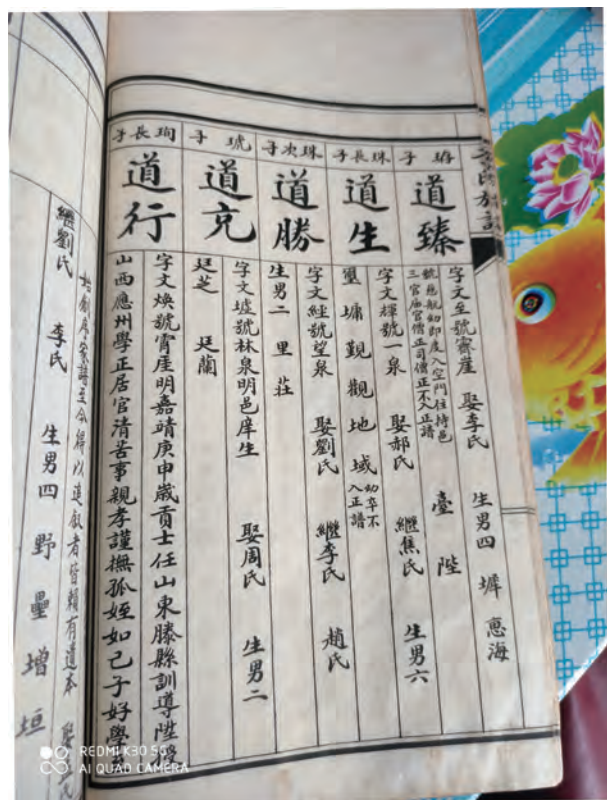 珛子
道臻
字文至號靈崖 娶李氏 生男四 墀 惠海
號慈航幼即度入空門住持邑
三官庙官僧正司僧正不入正譜
臺 陛
珠長子
道生
字文輝號一泉 娶郝氏 繼焦氏 生男六
璽 墉 觀 觀 地 域 幼卒不
入正譜
珠次子
道勝
字文經號望泉 娶劉氏 繼李氏 趙氏
生男二 里 莊
號子
道充
字文墟號林泉明邑庠生 娶周氏 生男二
廷芝 廷蘭
珣長子
道行
字文煥號霄崖明嘉靖庚申歲貢士任山東滕縣訓導陞
山西應州學正居官清苦事親孝謹撫孤姪如己子好學
始創序家譜至今得以追叙者皆賴有遺本 娶 氏
繼劉氏 李氏 生男四 野 壘 增 垣
REDMI K30 5G
AI QUAD CAMERA